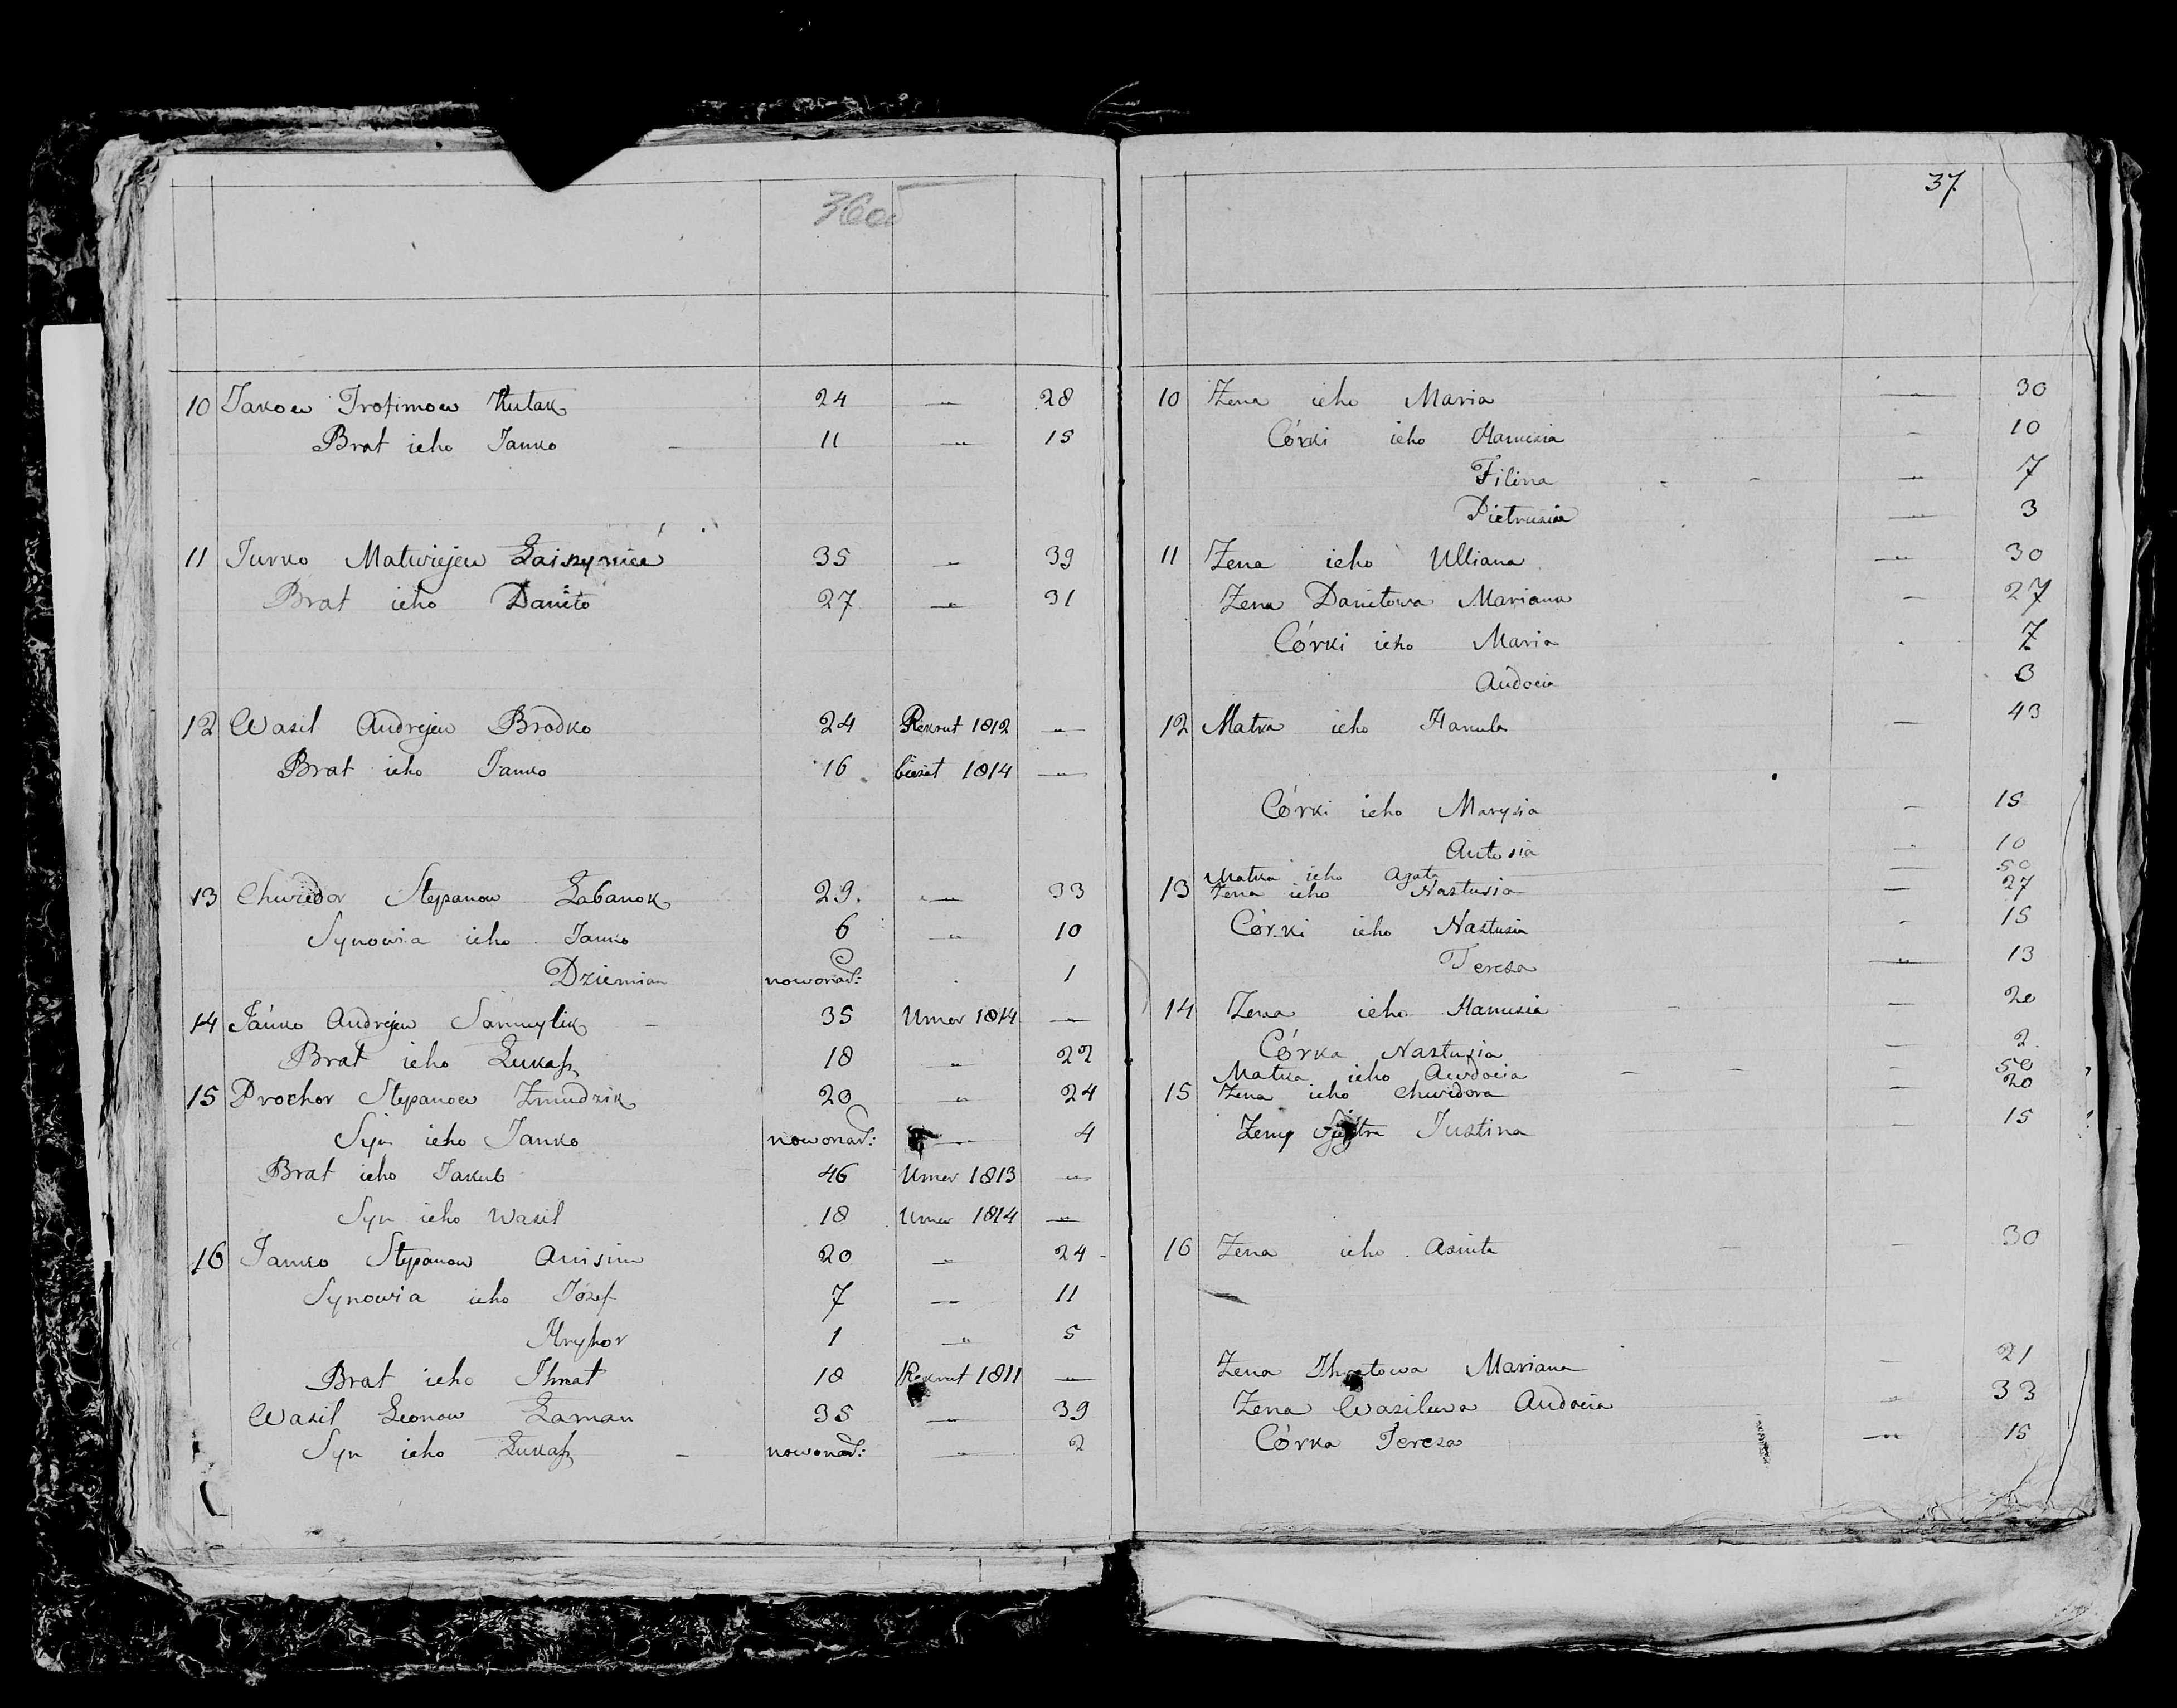 37
10 Jakow Trofimow Kulak 24 — 28
Brat ieho Janko — 11 — 15
11 Jurko Matwiejew 35 — 39
Brat ieho Daniło 27 — 31
12 Wasil Andrejew Brodko 24 Rekrut 1812 —
Brat ieho Janko 16 bieżał 1814 —
13 Chwiedor Stepanow Łabanok 29. — 33
Synowia ieho Janko 6 — 10
Dziemian nowonar: 1
14 Janko Andrejew Samuylik — 35 Umer 1814 —
Brat ieho Łukasz 18 — 22
15 Prochor Stepanow Żmudzik 20 — 24
Syn ieho Janko nowonar: — 4
Brat ieho Jakub 46 Umer 1813 —
Syn ieho Wasil 18 Umer 1814 —
16 Janko Stepanow Anisim 20 — 24
Synowia ieho Józef 7 — 11
Hryhor 1 — 5
Brat ieho Ihnat 18 Rekrut 1811 —
Wasil Leonow Łaman 35 — 39
Syn ieho Łukasz — nowonar: — 2
10 Żena ieho Maria — 30
Córki ieho Hanusia - 10
Filina - - — 7
Pietrusia — 3
11 Żena ieho Ulliana — 30
Żena Daniłowa Mariana - 27
Córki ieho Maria 7
Audocia 3
12 Matka ieho Hakula — 43
Córki ieho Marysia - 15
Antosia - 10
Matka ieho Agata — 50
13 Żena ieho Nastusia — 27
Córki ieho Nastusia - 15
Teresa — 13
14 Żena ieho Hanusia — 20
Córka Nastusia — 2.
Matka ieho Awdocia - - — 50
15 Żena ieho Chwidora — 20
Żeny Siestra Justina — 15
16 Żena ieho - — 30
Żena Ihnatowa Mariana — 21
Żena Wasilewa Audocia - 33
Córka Teresa — 15